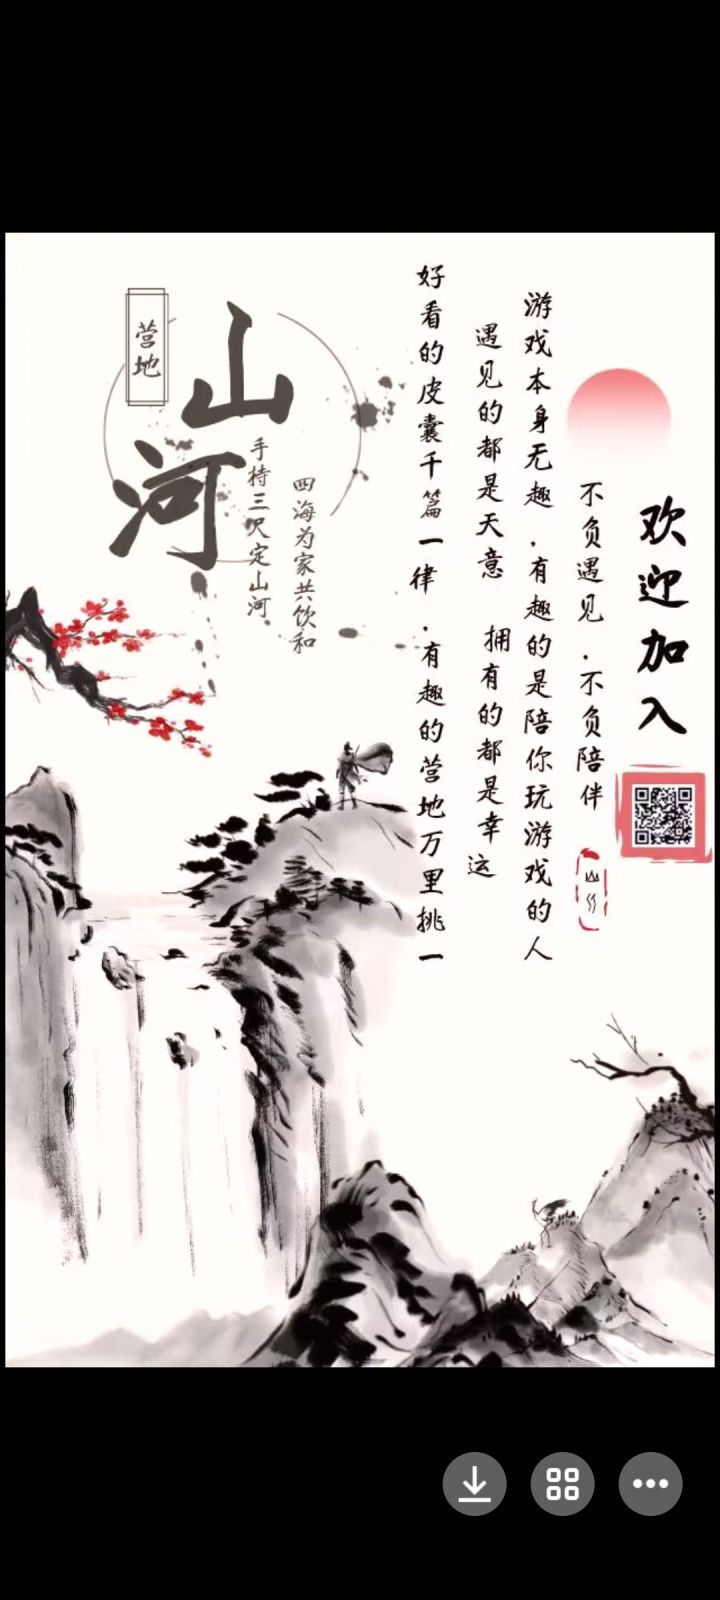 营地
山河
手持三尺定山河
四海为家共饮和
好看的皮囊千篇一律．有趣的营地万里挑一
遇见的都是天意 拥有的都是幸运
游戏本身无趣．有趣的是陪你玩游戏的人
不负遇见．不负陪伴
欢迎加入